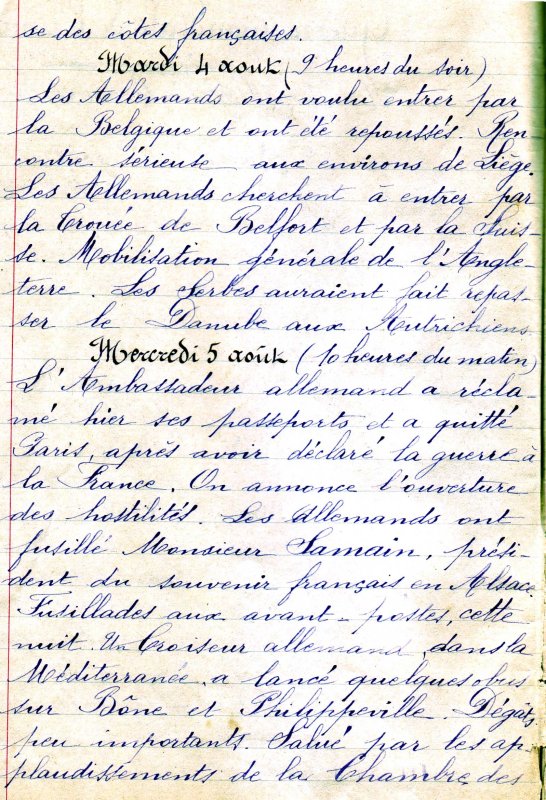 se des côtes françaises.
Mardi 4 août (9 heures du soir)
Les Allemands ont voulu entrer par
la Belgique et ont été repoussés. Ren-
contre sérieuse aux environs de Liège.
Les Allemands cherchent à entrer par
la Trouée de Belfort et par la Suis-
se. Mobilisation générale de l'Angle-
terre. Les Serbes auraient fait repas-
ser le Danube aux Autrichiens
Mercredi 5 août (10 heures du matin)
L'Ambassadeur allemand a récla-
mé hier ses passeports et a quitté
Paris, après avoir déclaré la guerre à
la France. On annonce l'ouverture
des hostilités. Les Allemands ont
fusillé Monsieur Samain, prési-
dent du souvenir français en Alsace
Fusillades aux avant-postes, cette
nuit. Un Croiseur allemand, dans la
Méditerranée, a lancé quelques obus
sur Bône et Philippeville. Dégâts
peu importants. Salué par les ap-
plaudissements de la Chambre des